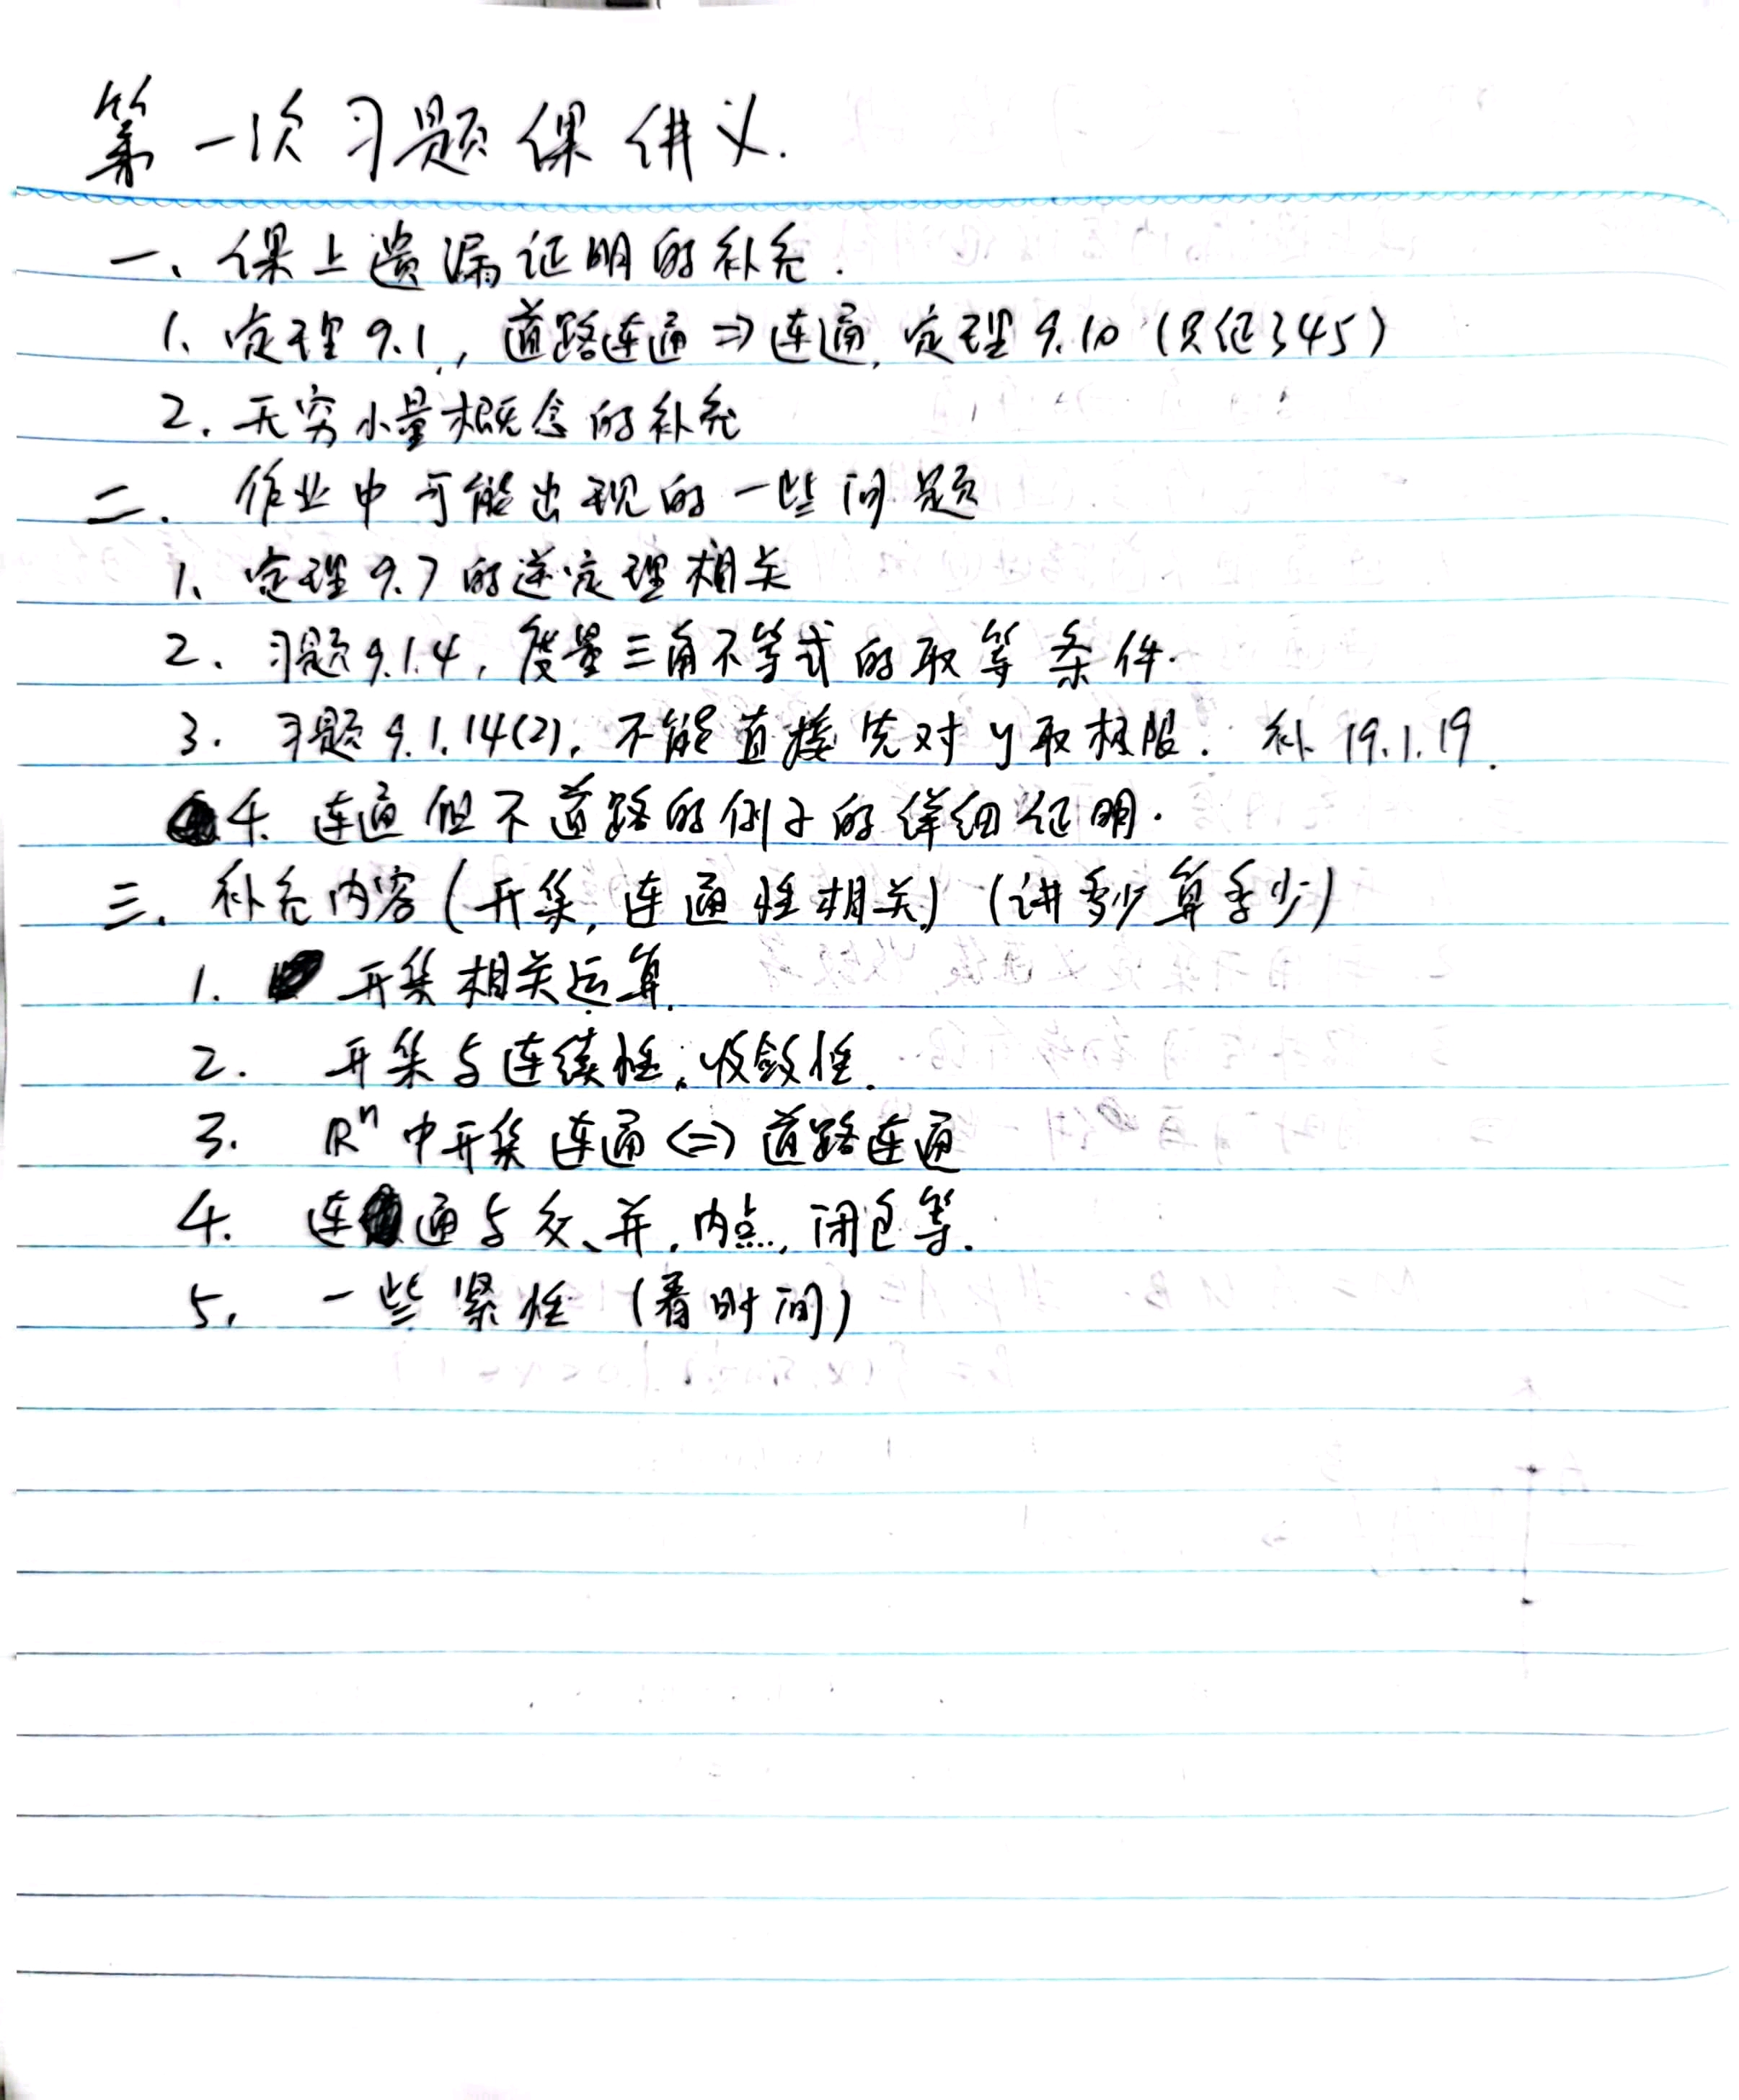 第一次习题课讲义.
一、课上遗漏证明的补充.
1、定理9.1, 道路连通⇒连通, 定理9.10 (只证345)
2. 无穷小量概念的补充
二. 作业中可能出现的一些问题
1、定理9.7的逆定理相关
2、习题9.1.4, 度量三角不等式的取等条件.
3. 习题9.1.14(2), 不能直接先对y取极限. 补 19.1.19.
4. 连通但不道路的例子的详细证明.
三. 补充内容(开集, 连通性相关) (讲多少算多少)
1. 开集相关运算.
2. 开集与连续性, 收敛性.
3. Rⁿ中开集连通⇔道路连通
4. 连通与交、并, 内点, 闭包等.
5. 一些紧性 (看时间)